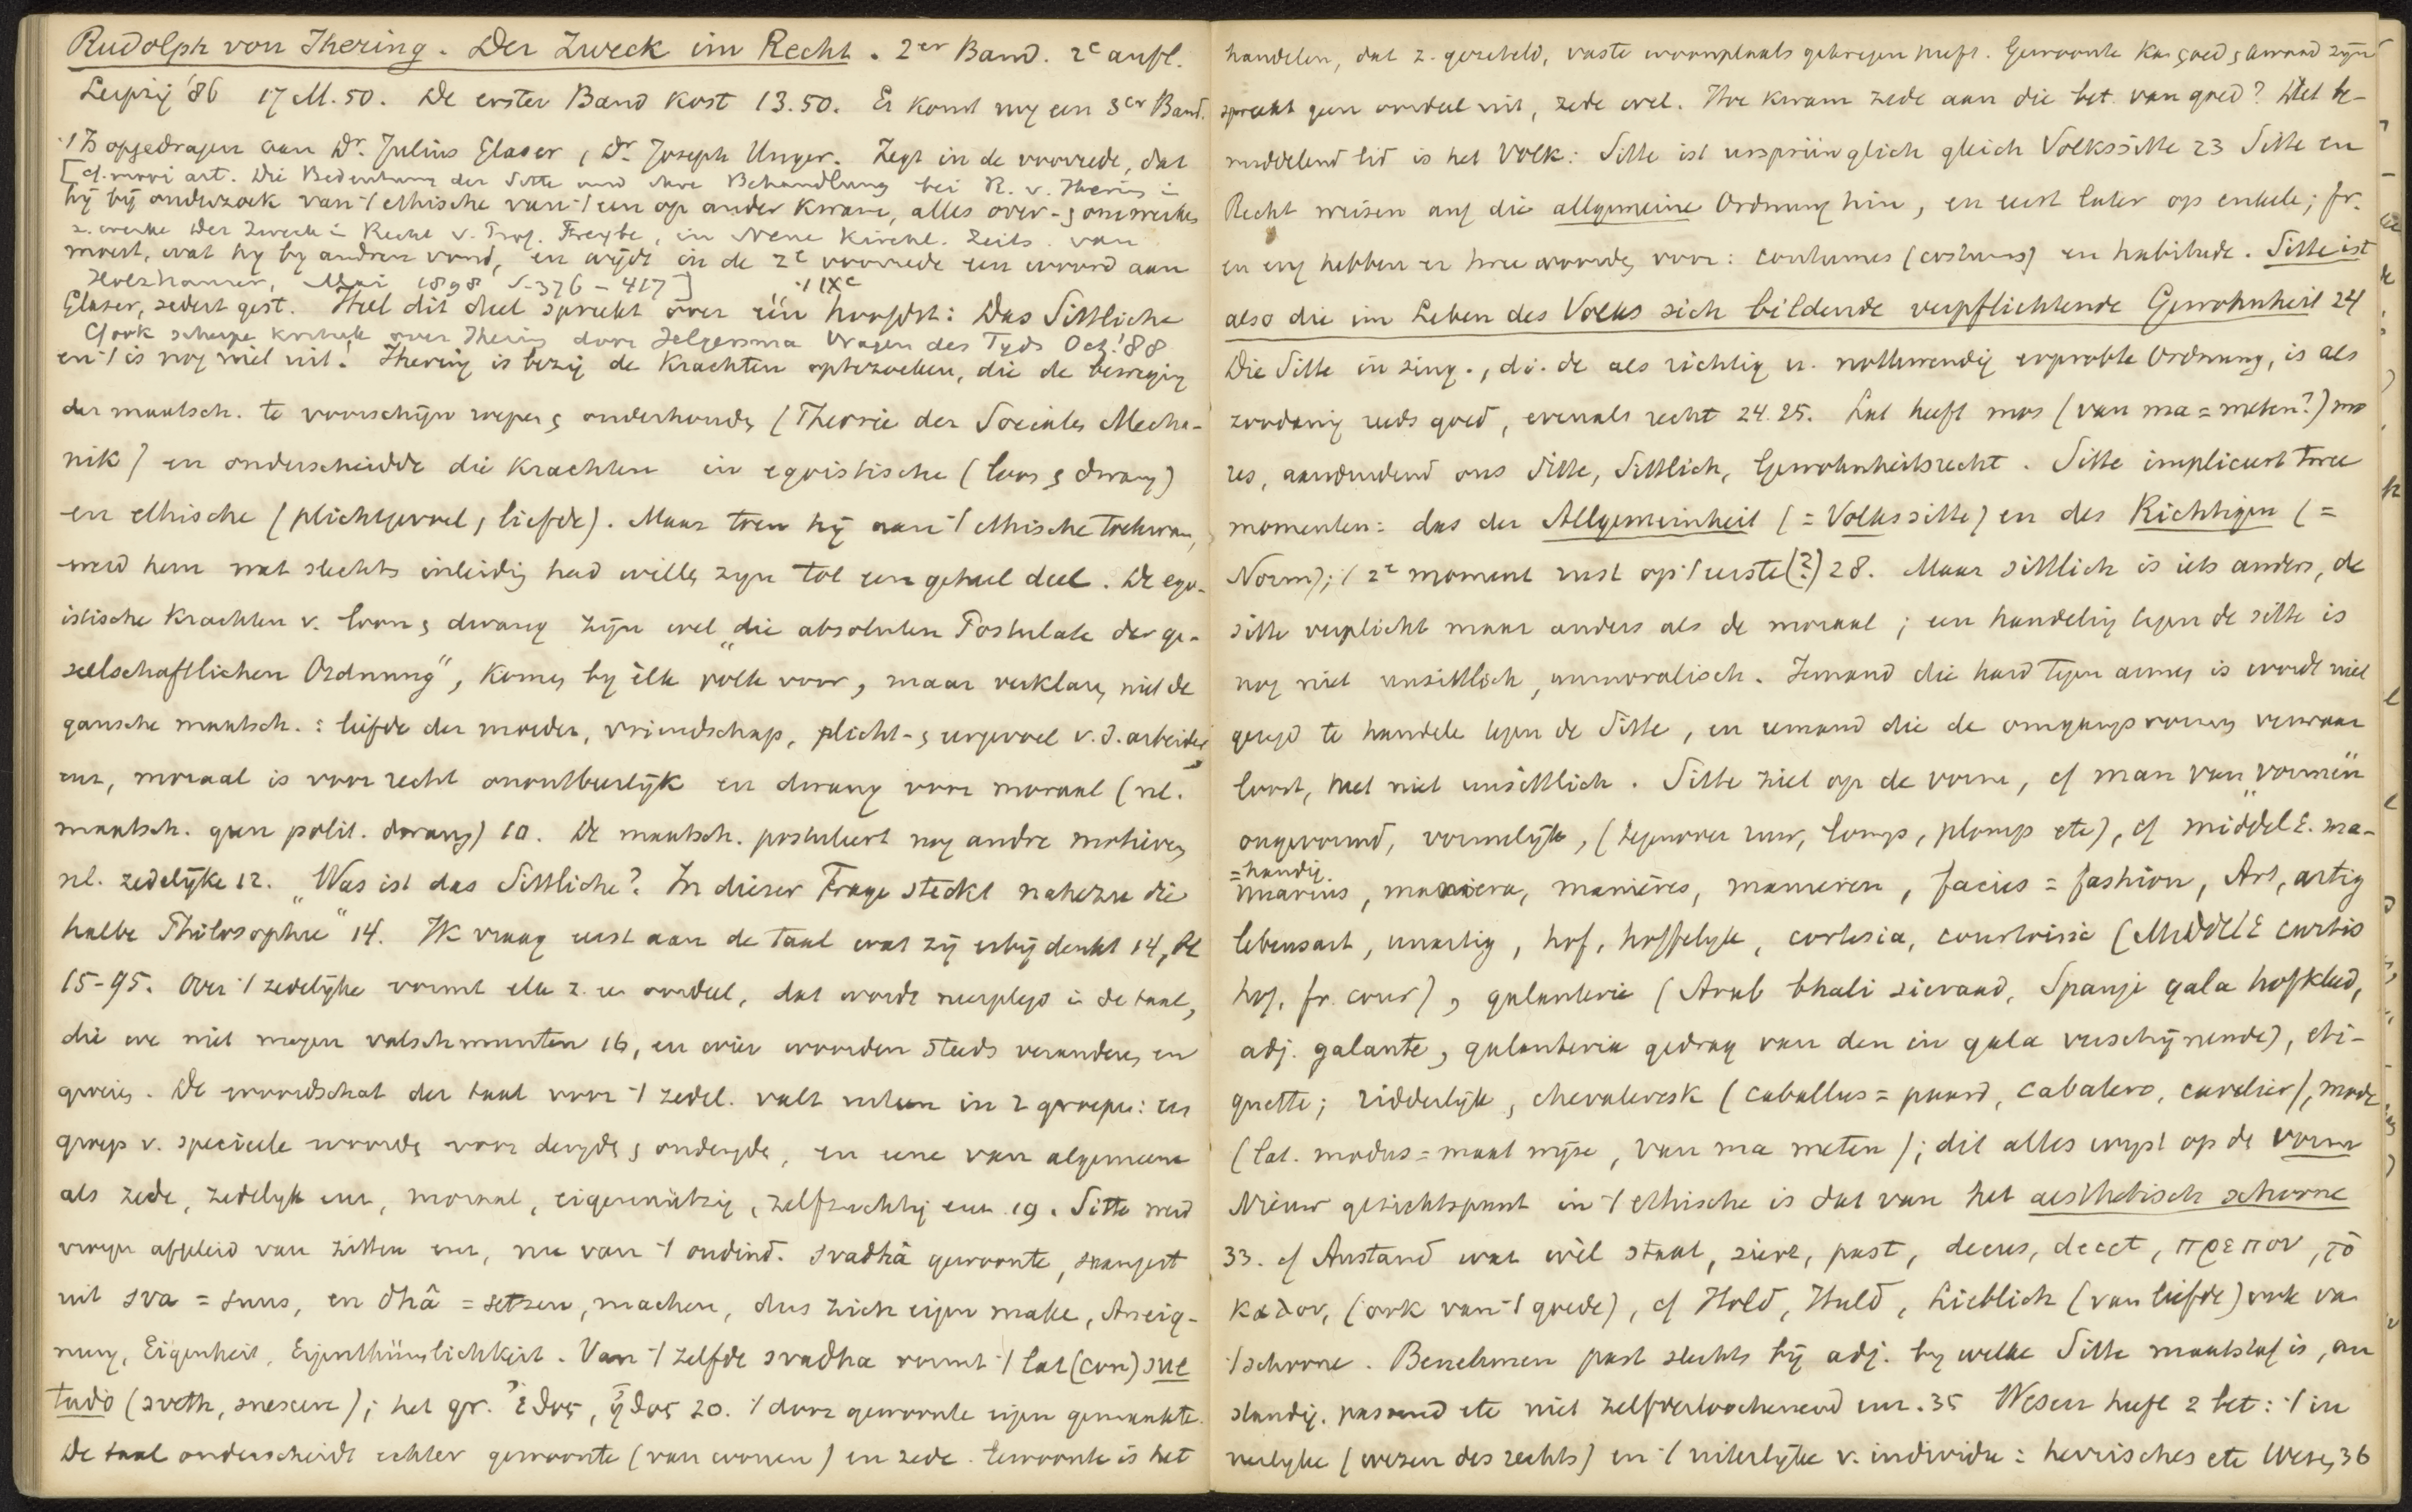 Rudolph von Ihering. Der Zweck im Recht. 2er Band. 2e aufl.
Leipzig '86 17 M. 50. De erster Band kost 13.50. Er komt nog een 3er Band.
't Is opgedragen aan Dr. Julius Glaser, Dr. Joseph Unger. Zegt in de voorrede, dat
[cf. mooi art. Die Bedeutung der Sitte und ihre Behandlung bei R. v. Ihering in
hij bij onderzoek van 't ethische van 't een op ander kwam, alles over- & omwerken
z. werke Der Zweck i. Recht v. Prof. Freybe, in Neue Kirchl. Zeits. van
moest, wat hy by andren vond, en wijdt in de 2e voorrede een woord aan
Holzhauser, Mai 1898 S. 376-417] 't IXe
Glaser, sedert gest. Heel dit deel spreekt over één hoofdst: Das Sittliche
Cf ook scherpe kritiek over Ihering door Jelgersma Vragen des Tyds Oct. '88
en 't is nog niet uit! Ihering is bezig de krachten optezoeken, die de beweging
der maatsch. te voorschijn roepen & onderhouden (Theorie der Socialen Mecha-
nik) en onderscheidde die krachten in egoistische (loon & dwang)
en ethische (plichtgevoel, liefde). Maar toen hij aan 't ethische toekwam,
werd hem wat slechts inleiding had willen zyn tot een geheel deel. De ego-
istische krachten v. loon & dwang zijn wel „die absoluten Postulate der ge-
sellschaftlichen Ordnung", komen by elk volk voor, maar verklaren niet de
gansche maatsch.: liefde der moeder, vriendschap, plicht- & eergevoel v. d. arbeider
enz, moraal is voor recht onontbeerlijk en dwang voor moraal (nl.
maatsch. geen polit. dwang) 10. De maatsch. postuleert nog andre motieven
nl. zedelijke 12. „Was ist das Sittliche? In dieser Frage steckt nahezu die
halbe Philosophie" 14. Ik vraag eerst aan de taal wat zij erbij denkt 14,
15-95. Over 't zedelijke vormt elk z. een oordeel, dat wordt neergelegd in de taal,
die we niet mogen valschmunten 16, en wier woorden steeds veranderen en
groeien. De woordschat der taal voor 't zedel. valt uiteen in 2 groepen: een
groep v. speciele woorden voor deugden & ondeugden, en eene van algemeene
als zede, zedelyk enz, moraal, eigennützig, zelfzuchtig enz. 19. Sitte werd
vroeger afgeleid van zitten enz, nu van 't oudind. svadhâ gewoonte, saamgest
uit sva = suus, en dhâ = setzen, machen, dus zich eigen maken, Aneig-
nung, Eigenheit, Eigenthümlichkeit. Van 't zelfde svadha komt 't lat (con)sue
tudo (sveth, suescere); het gr. ἔθος, ἦθος 20. 't door gewoonte eigen gemaakte.
De taal onderscheidt echter gewoonte (van wonen) en zede. Gewoonte is het
handelen, dat z. gezeteld, vaste woonplaats gekregen heeft. Gewoonte kan goed & kwaad zijn
spreekt geen oordeel uit, zede wel. Hoe kwam zede aan die bet. van goed? Het be-
middelend lid is het Volk: Sitte ist ursprünglich gleich Volkssitte 23 Sitte en
Recht weisen auf die allgemeine Ordnung hin, en eerst later op enkele; fr.
en eng hebben er twee woorden voor: coutumes (costumes) en habitude. Sitte ist
also die im Leben des Volkes sich bildende verpflichtende Gewohnheit 24
Die Sitte in sing., d.i. de als richtig u. nothwendig erprobte Ordnung, is als
zoodanig reeds goed, evenals recht 24.25. Lat heeft mos (van ma = meten?) mo
res, aanduidend ons Sitte, Sittlich, Gewohnheitsrecht. Sitte impliceert twee
momenten: das der Allgemeinheit (= Volkssitte) en des Richtigen (=
Norm); 't 2e moment rust op 't eerste (?) 28. Maar sittlich is iets anders, de
sitte verplicht maar anders als de moraal; een handeling tegen de sitte is
nog niet unsittlich, unmoralisch. Iemand die hard tegen armen is wordt niet
gezegd te handelen tegen de Sitte, en iemand die de omgangsvormen verwaar
loost, heet niet unsittlich. Sitte ziet op de vorm, cf man van „vormen"
ongevormd, vormelijk, (tegenover ruw, lomp, plomp etc), cf middel E. ma-
= handig.
nuarius, maniera, manières, manieren, facies = fashion, Art, artig
lebensart, unartig, hof, hoffelyk, cortesia, courtoisie (Middel E curtis
hof, fr. cour), galanterie (Arab khali sieraad, Spanje gala hofkleed,
adj. galante, galanteria gedrag van den in gala verschijnende), eti-
quette; ridderlijk, chevaleresk (caballus = paard, cabalero, cavelier), mode
(lat. modus = maat wijze, van ma meten); dit alles wijst op de vorm
Nieuw gezichtspunt in 't ethische is dat van het aesthetisch schoone
33. cf Anstand wat wèl staat, siere, past, decus, decet, πρεπον, τὸ
καλον, (ook van 't goede), cf Hold, Huld, Lieblich (van liefde) ook van
't schoone. Benehmen past slechts bij adj. by welke Sitte maatstaf is, an
standig, passend etc niet zelfverloochenend enz. 35 Wesen heeft 2 bet: 't in
nerlyke (wezen des rechts) en 't uiterlijke v. individu: herrisches etc Wesen 36